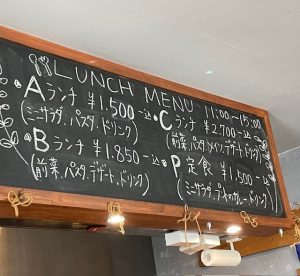 LUNCH MENU 11:00~15:00
Aランチ ¥1,500-込
(ミニサラダ、パスタ、ドリンク)
Bランチ ¥1,850-込
(前菜、パスタ、デザート、ドリンク)
Cランチ ¥2,700-込
(前菜、パスタ、メイン、デザート、ドリンク)
P定食 ¥1,500-込
(ミニサラダ、カレー、ドリンク)